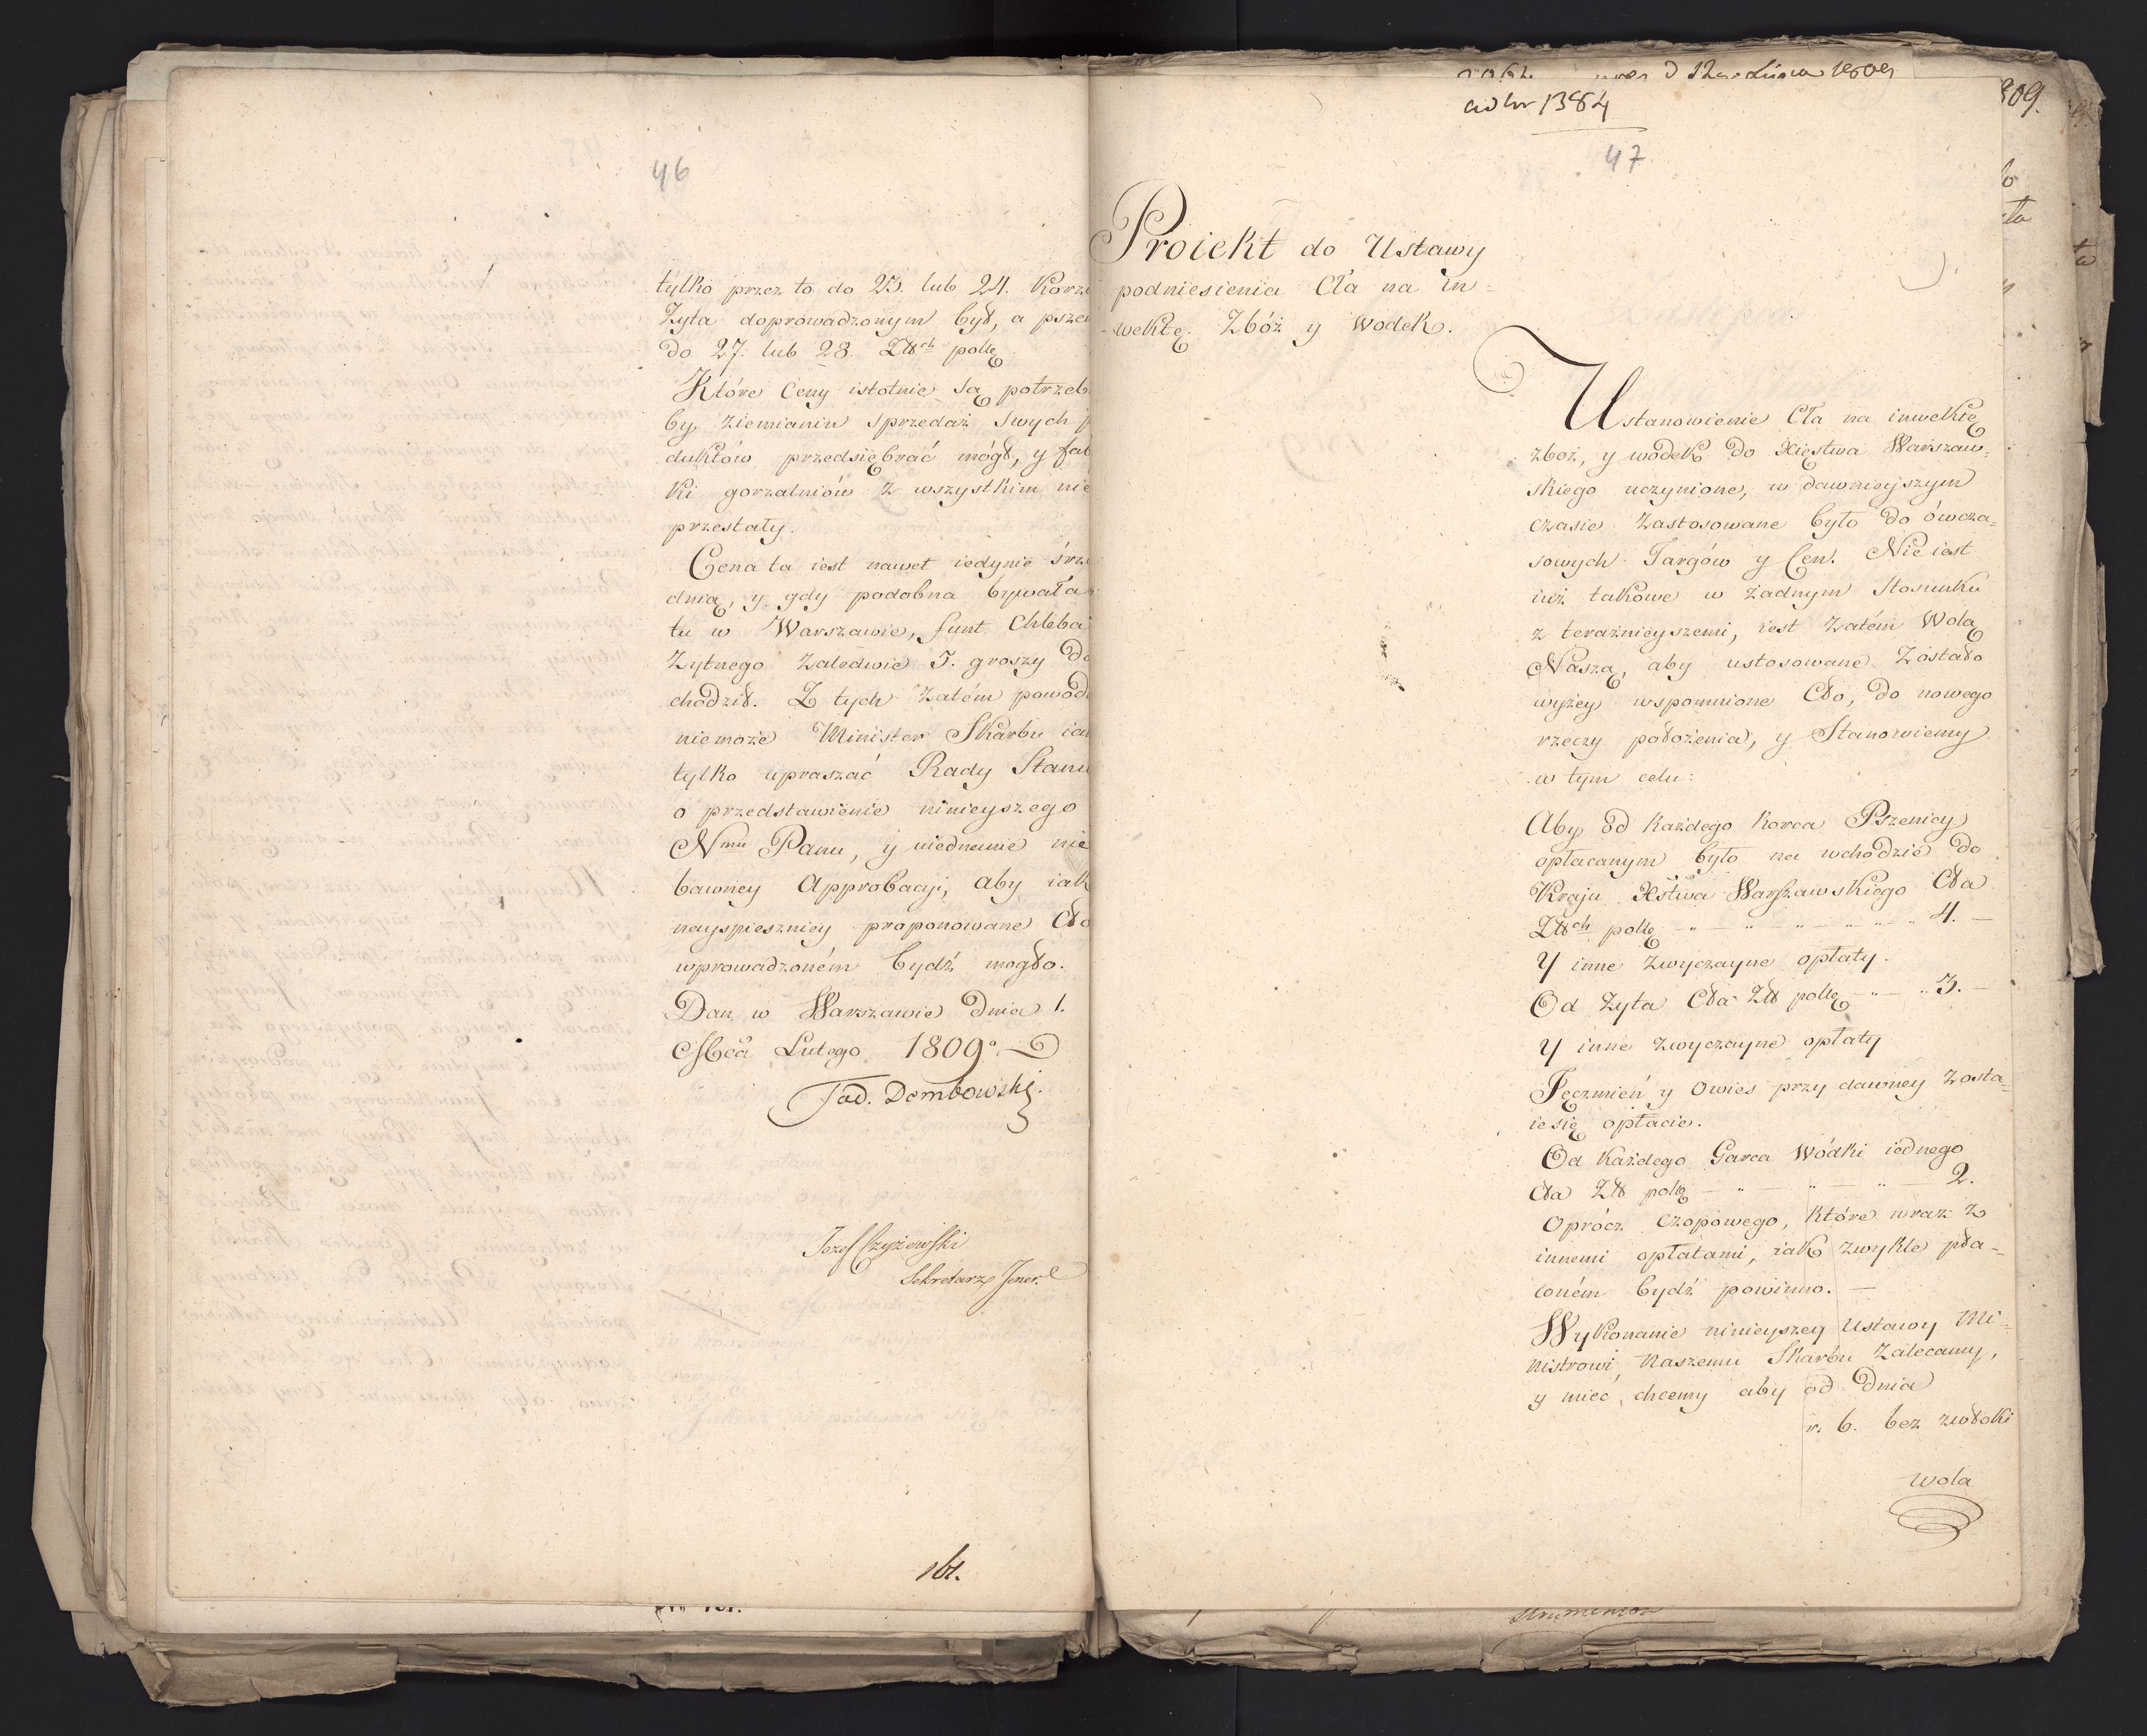 46
tylko przez to do 23. lub 24. Korz
Żyta doprowadzonym był, a psze
do 27. lub 28. Złł<sup>ch</sup> pollę
Które Ceny istotnie są potrzeb
by Ziemianin sprzedaż swych p
duktów przedsiębrać mógł, y fab
ki gorzalniów z wszystkim nie
przestały.
Cena ta iest nawet iedynie śrze
dnią, y gdy podobna bywała
tu w Warszawie, funt Chleba
Żytnego zaledwie 5. groszy do
chodził. Z tych zatém powod
niemoże Minister Skarbu ia
tylko upraszać Rady Stanu
o przedstawienie ninieyszego
Nmu Panu, y uiednanie nie
bawney Approbacyi, aby iak
nayspieszniey proponowane Cło
wprowadzoném bydź mogło.
Dan w Warszawie Dnia 1.
Mca Lutego 1809º
Tad. Dembowski.
Jozef Czyżewski
Sekretarz Jener.l
161.
ad Nr 1384
47
Proiekt do Ustawy
podniesienia Cła na in=
wektę Zbóż y Wodek.
Ustanowienie Cła na inwektę
zboż, y wódek do Xięstwa Warszaw=
skiego uczynione, w dawnieyszym
czasie zastosowane było do ówcza=
sowych Targów y Cen. Nie iest
iuż takowe w żadnym Stosunku
z teraźnieyszemi, iest zatém Wolą
Naszą, aby ustosowane Zostało
wyżey wspomnione Cło, do nowego
rzeczy położenia, y Stanowiemy
w tym celu:
Aby od każdego Korca Pszenicy
opłacanym było na wchodzie do
Kraju Xstwa Warszawskiego Cła
Złłch pollę 4. —
Y inne zwyczayne opłaty.
Od Żyta Cła Złł pollę 3. —
Y inne zwyczayne opłaty
Jęczmień y Owies przy dawney zosta=
ie się opłacie.
Od każdego Garca Wódki iednego
Cła Złł pollę 2.
Oprócz Czopowego, które wraz z
innemi opłatami, iak zwykle pła=
coném bydź powinno. —
Wykonanie ninieyszey Ustawy Mi=
nistrowi Naszemu Skarbu Zalecamy,
y mieć chcemy aby od Dnia
r. b. bez zwłoki
wola